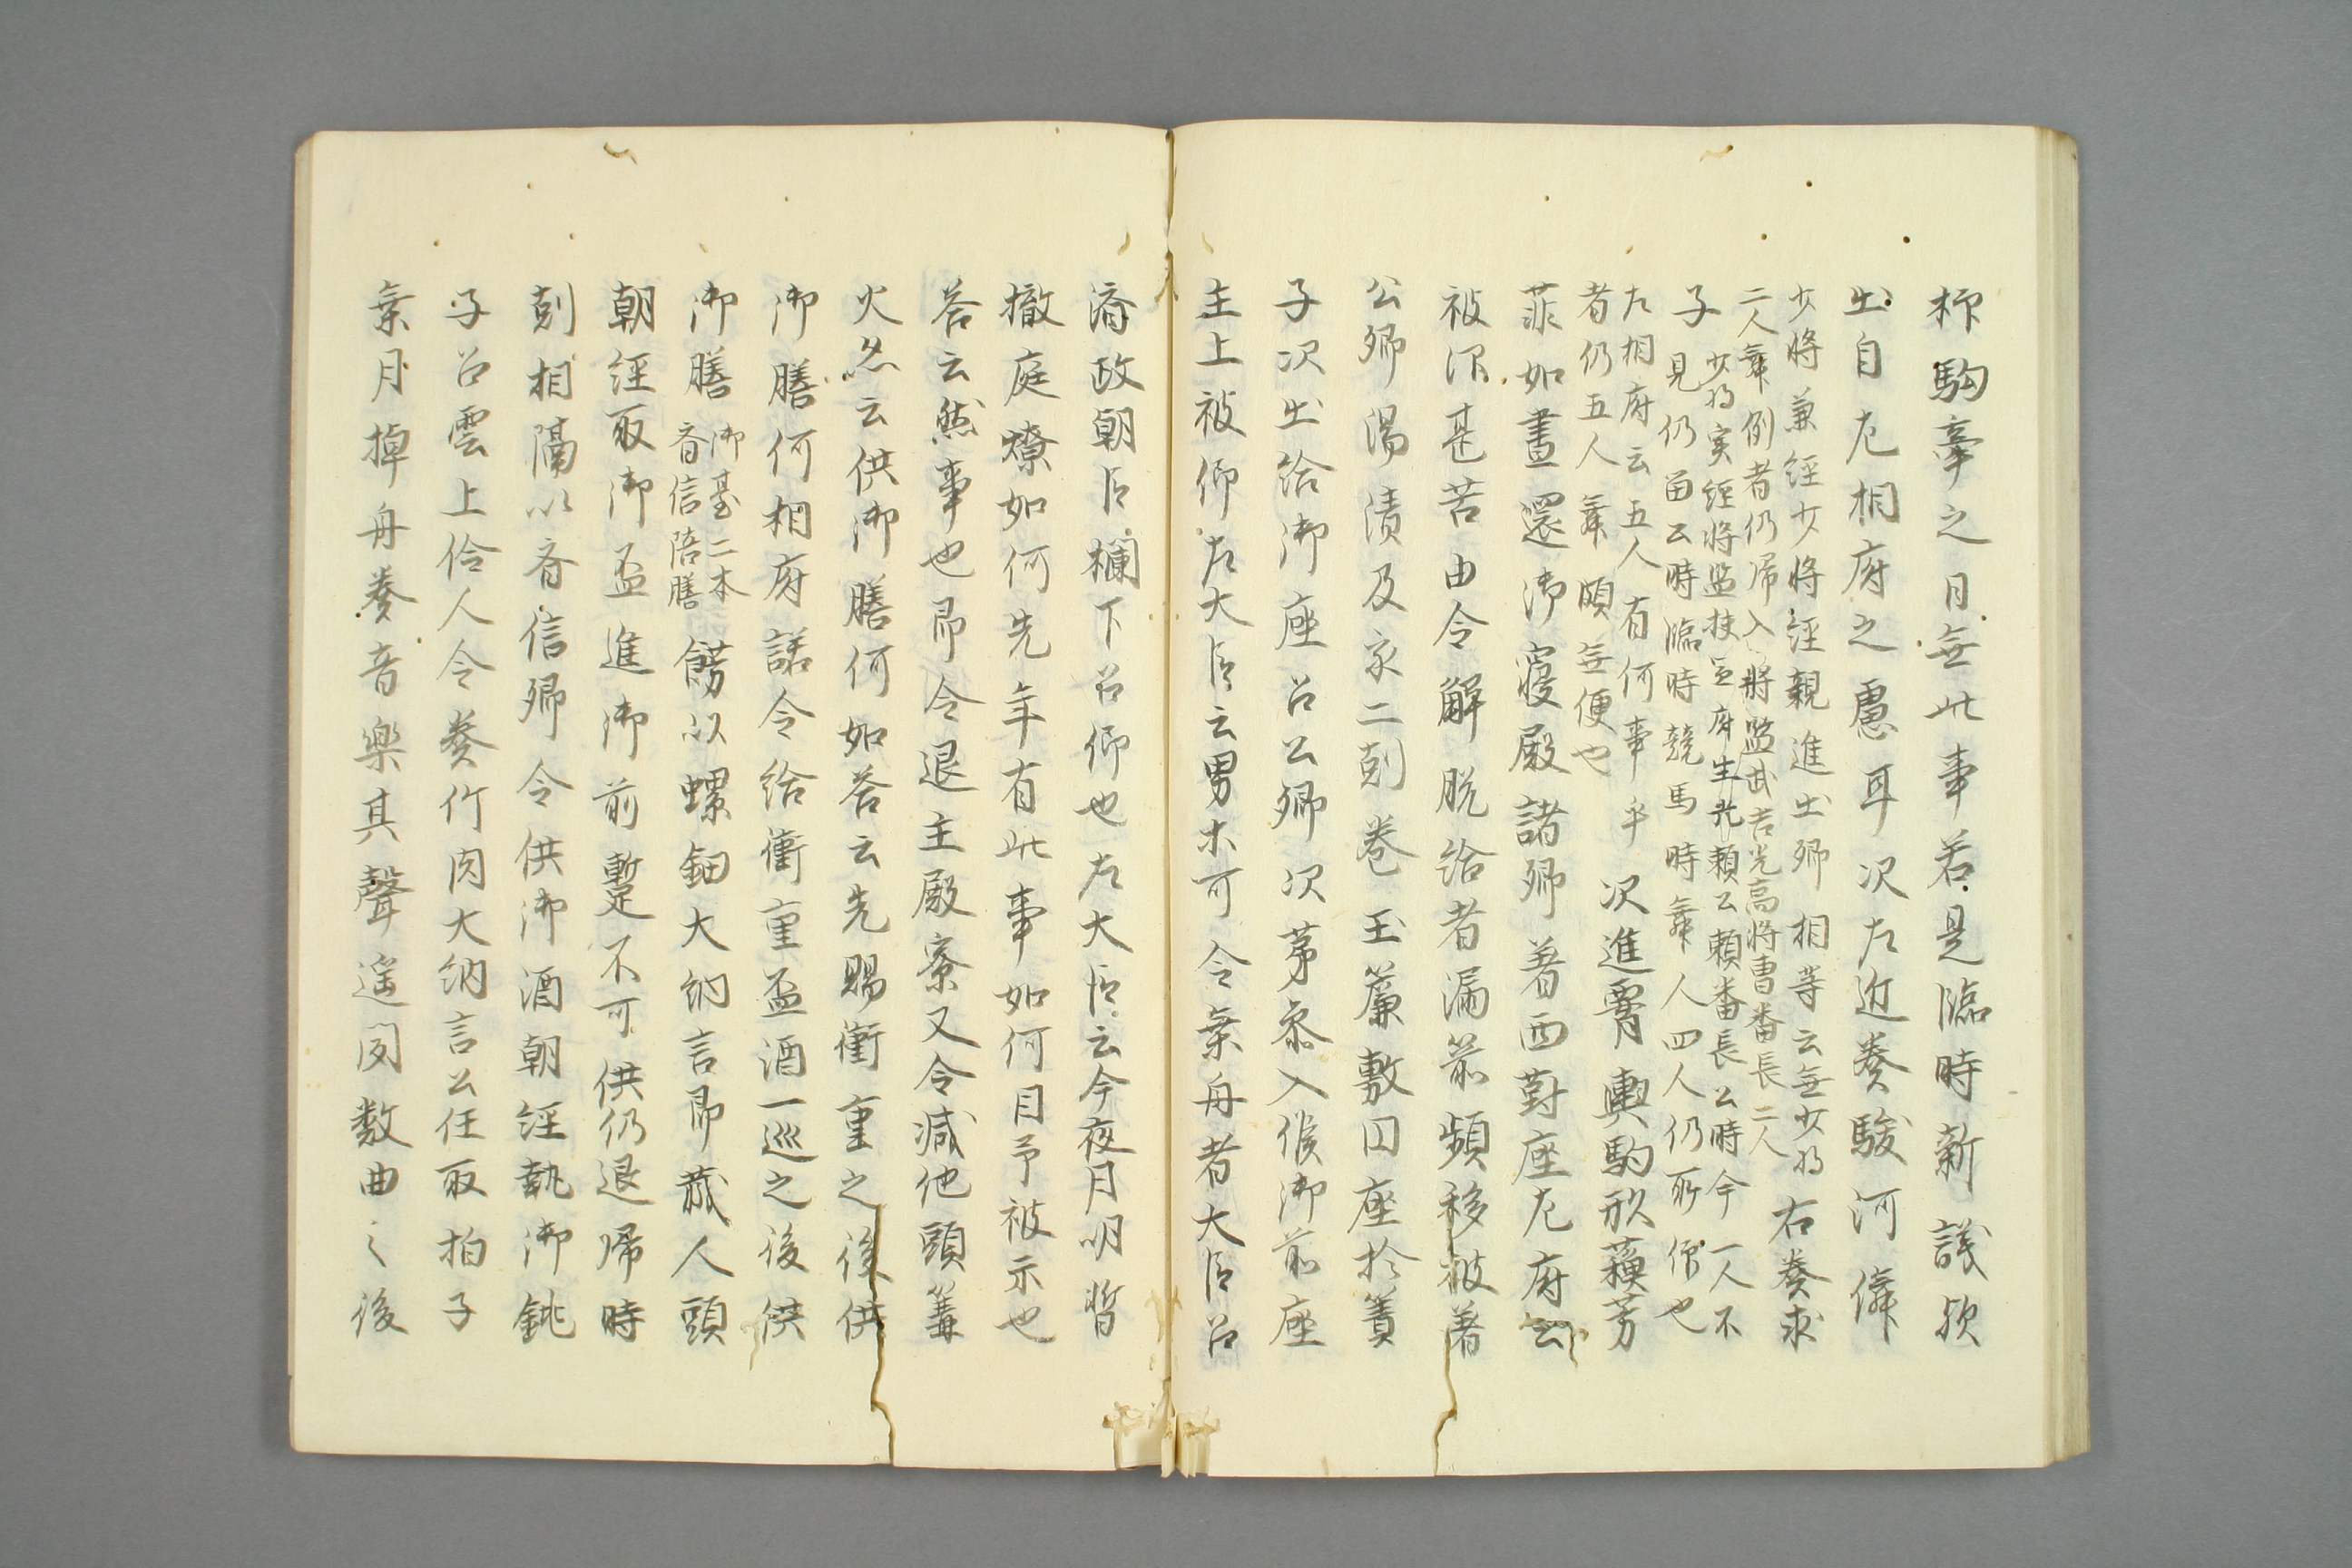 柳駒牽之日無此事若是臨時新議欤
出自左相府之慮耳次左近奏駿河儛
少將兼経少将経親進出卿相等云無少将
二人舞例者仍帰入将監武吉光高将曹番長二人
右奏求
子
少将実経将監扶宣府生光頼公頼番長公時今一人不
見仍留公時臨時競馬時舞人四人仍所作也
左相府云五人有何事乎
者仍五人舞頗無便也
次進霄輿駒形蘓芳
菲如晝還御寝殿諸卿着西對座左府云
被深甚苦由令解脱給者漏前頻移被着
公卿湯漬及亥二剋巻玉簾敷円座於簀
子次出給御座召公卿次苐参入候御前座
主上被仰左大臣云男ホ可令乗舟者大臣召
済政朝臣欄下召仰也左大臣云今夜月明皆
撤庭燎如何先年有此事如何目予被示也
答云然事也即令退主殿寮又令减他頭篝
火忽云供御膳何如答云先賜衝重之後供
御膳何相府諾令給衝重盃酒一巡之後供
御膳
御臺二本
斉信陪膳
餝以螺鈿大納言即蔵人頭
朝経取御盃進御前蹔不可供仍退帰時
剋相隔以斉信卿令供御酒朝経執御銚
子召雲上伶人令奏竹肉大納言公任取拍子
乗月掉舟奏音樂其聲遥聞数曲之後